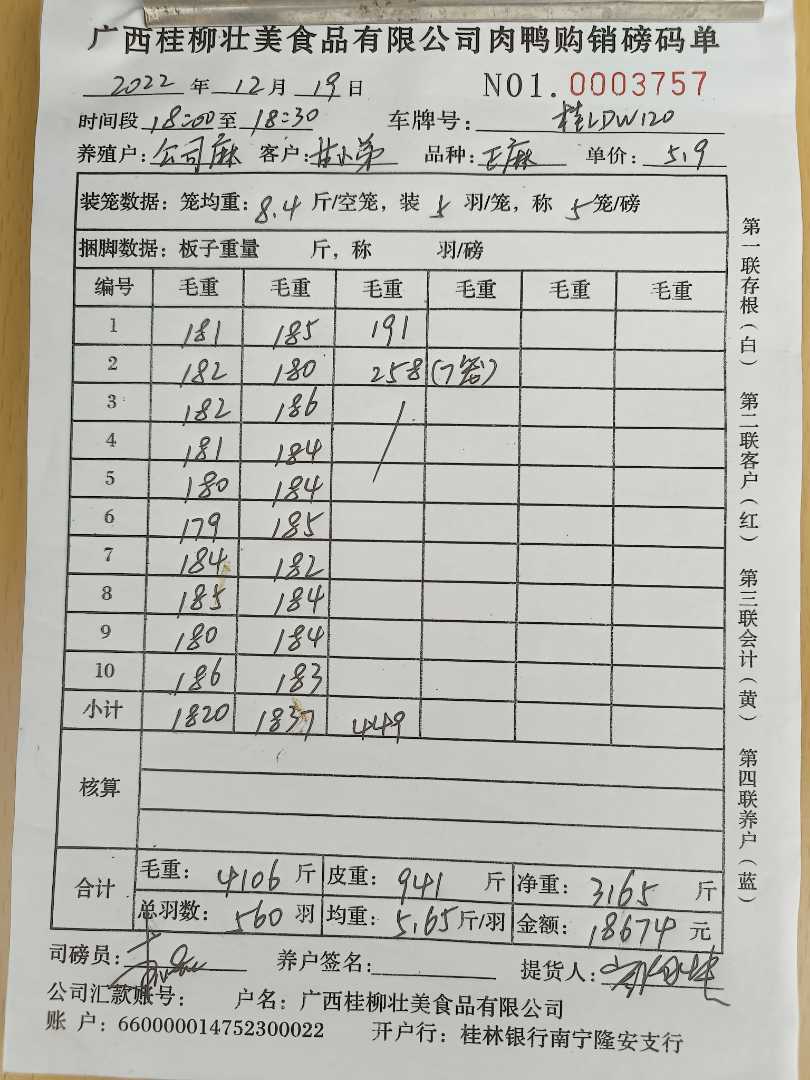 广西桂柳壮美食品有限公司肉鸭购销磅码单
2022 年 12 月 19 日 NO1. 0003757
时间段 18:00 至 18:30 车牌号: 桂LDW120
养殖户: 公司麻 客户: 甘小弟 品种: 正麻 单价: 5.9
装笼数据: 笼均重: 8.4 斤/空笼, 装 5 羽/笼, 称 5 笼/磅
捆脚数据: 板子重量 斤, 称 羽/磅
编号 毛重 毛重 毛重 毛重 毛重 毛重
1 181 185 191
2 182 180 258 (7笼)
3 182 186
4 181 184
5 180 184
6 179 185
7 184 182
8 185 184
9 180 184
10 186 183
小计 1820 1837 449
核算
合计
毛重: 4106 斤 皮重: 941 斤 净重: 3165 斤
总羽数: 560 羽 均重: 5.65 斤/羽 金额: 18674 元
司磅员: 养户签名: 提货人:
公司汇款账号: 户名: 广西桂柳壮美食品有限公司
账 户: 660000014752300022 开户行: 桂林银行南宁隆安支行
第一联存根(白) 第二联客户(红) 第三联会计(黄) 第四联养户(蓝)